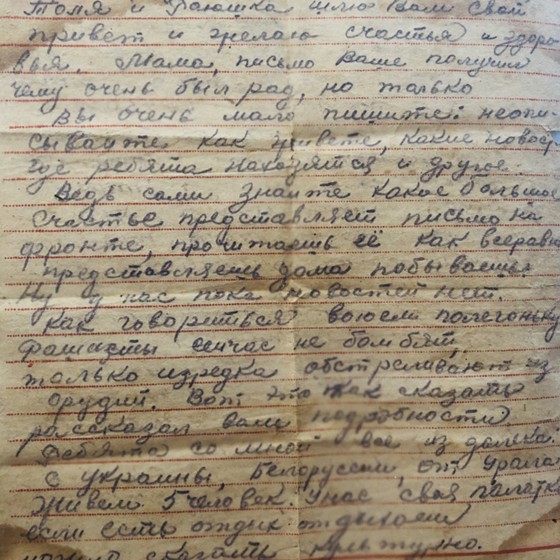 Толя и Раюшка шлю Вам свой
привет и желаю счастья и здоро
вья. Мама, письмо Ваше получил
чему очень был рад, но только
Вы очень мало пишите: неопи-
сывайте как живете, какие новос
где ребята находятся и другое
Ведь сами знаите какое большое
счастье представляет письмо на
фронте, прочитаешь её как всеравно
представляешь дома побываешь.
Ну у нас пока новостей нет.
Как говориться воюем полегоньку
фашисты сейчас не бомбят,
только изредка обстреливают из
орудий. Вот это так сказать
рассказал вам подробности
Ребята со мной все из далека
с украины, Белоруссии, от Урала
Живем 5 человек. У нас своя палатка
если есть отдых отдыхаем
можно сказать культурно.